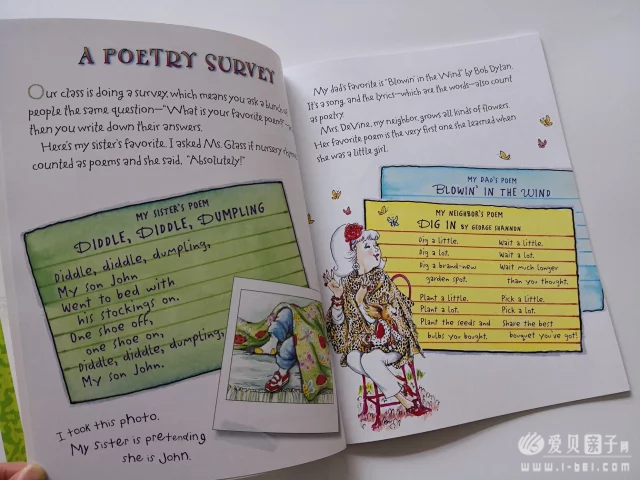 A POETRY SURVEY
Our class is doing a survey, which means you ask a bunch of
people the same question—"What is your favorite poem?"—
then you write down their answers.
Here's my sister's favorite. I asked Ms. Glass if nursery rhymes
counted as poems and she said, "Absolutely!"
MY SISTER'S POEM
DIDDLE, DIDDLE, DUMPLING
Diddle, diddle, dumpling,
My son John
Went to bed with
his stockings on.
One shoe off,
one shoe on,
Diddle, diddle, dumpling,
My son John.
I took this photo.
My sister is pretending
she is John.
My dad's favorite is "Blowin' in the Wind" by Bob Dylan.
It's a song, and the lyrics—which are the words—also count
as poetry.
Mrs. DeVine, my neighbor, grows all kinds of flowers.
Her favorite poem is the very first one she learned when
she was a little girl.
MY DAD'S POEM
BLOWIN' IN THE WIND
MY NEIGHBOR'S POEM
DIG IN BY GEORGE SHANNON
Dig a little.
Dig a lot.
Dig a brand-new
garden spot.
Plant a little.
Plant a lot.
Plant the seeds and
bulbs you bought.
Wait a little.
Wait a lot.
Wait much longer
than you thought.
Pick a little.
Pick a lot.
Share the best
bouquet you've got!
爱贝亲子网
www.i-bei.com